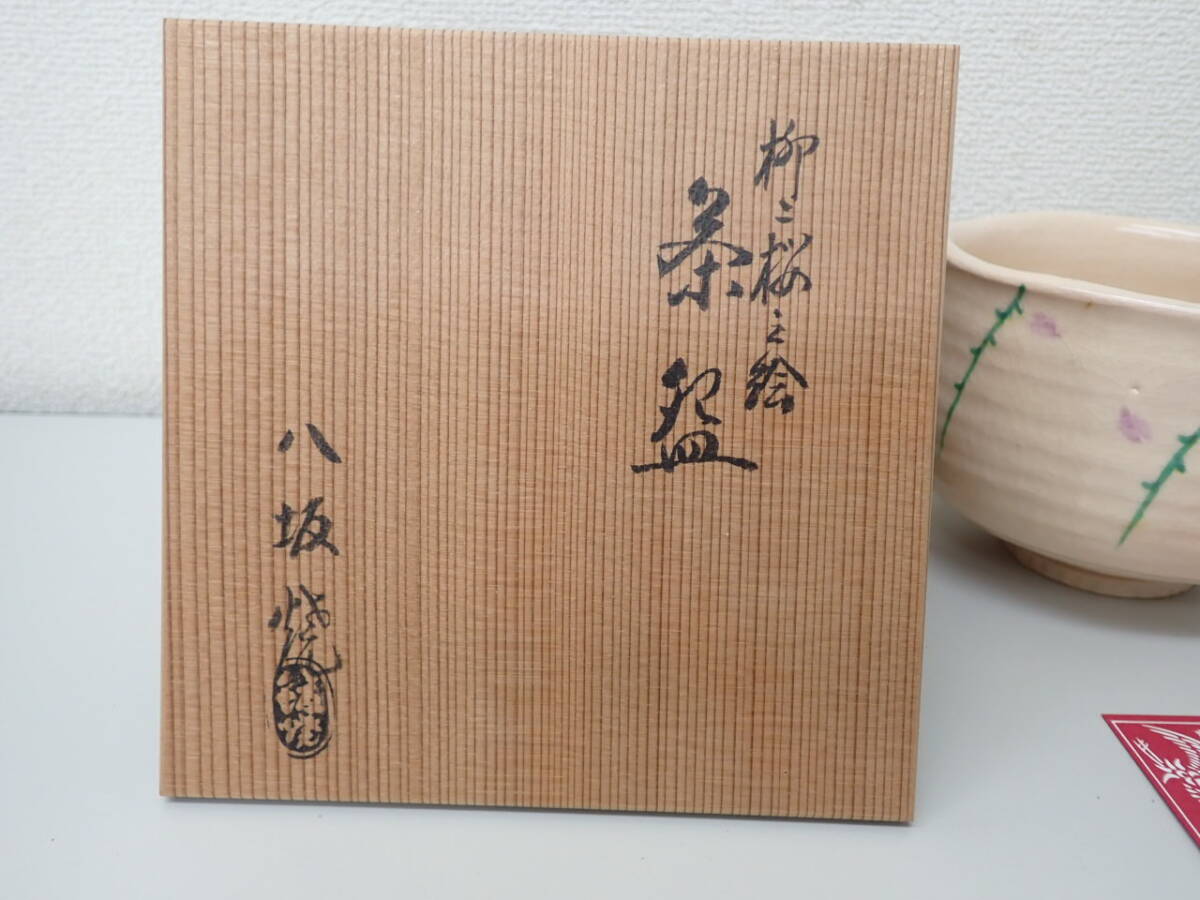 柳ニ桜之絵
茶盌
八坂焼